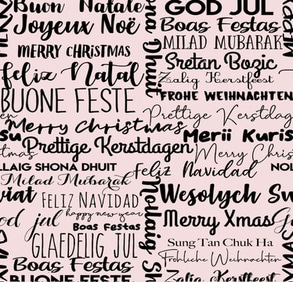 Buon Natale
GOD JUL
Joyeux Noël
Boas Festas
MERRY CHRISTMAS
MILAD MUBARAK
Sretan Bozic
Feliz Natal
Zalig Kerstfeest
BUONE FESTE
FROHE WEIHNACHTEN
Prettige Kerstdag
Merry Christmas
Merii Kuris
Prettige Kerstdagen
Merry Christm
LAIG SHONA DHUIT
Feliz
Navidad
Milad Mubarak
NOL
viat
FELIZ NAVIDAD
Wesolych Sw
happy new year
god jul
Boas Festas
Merry Xmas
GLAEDELIG JUL
Sung Tan Chuk Ha
Boas Festas
Fröhliche Weihnachten
Zalig Kerstfeest
ona Dhuit
Nollaig Sh